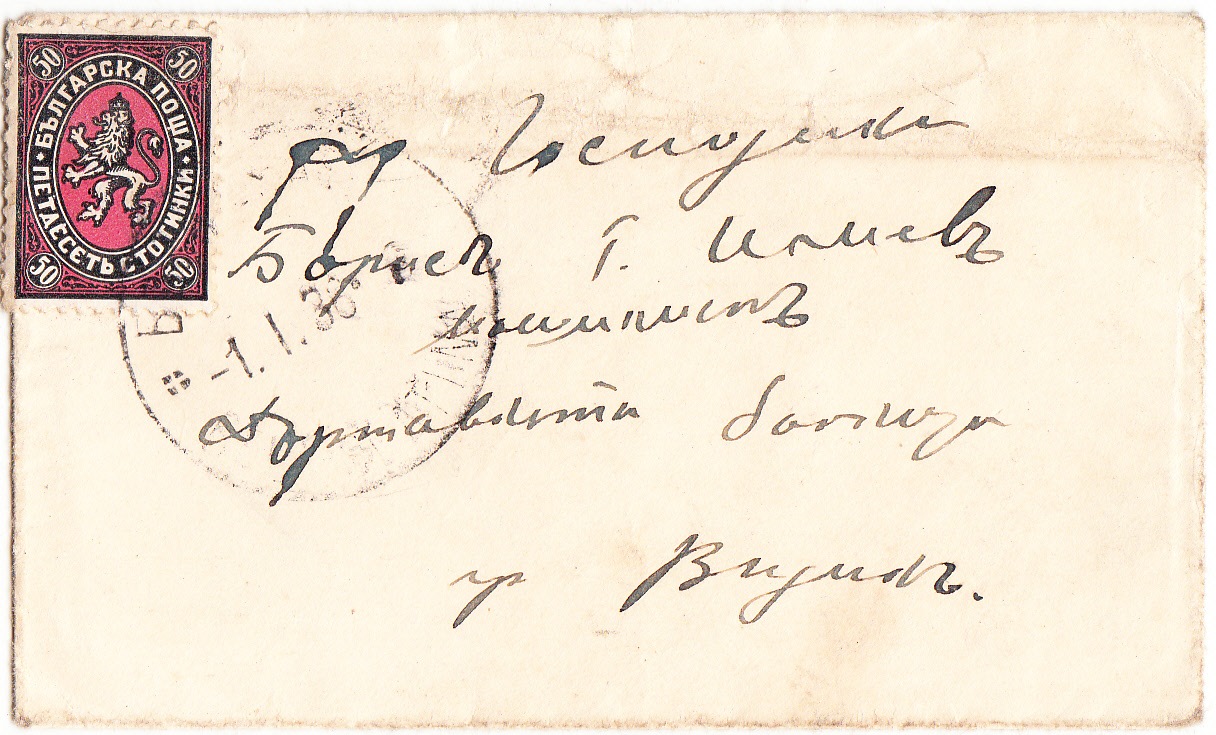 50 50
БЪЛГАРСКА ПОЩА
ПЕТДЕСЕТЬ СТОТИНКИ
50 50
-1. I. 38.
Господина
Борисъ Г. Илиевъ
Държавната болница
гр Видинъ.